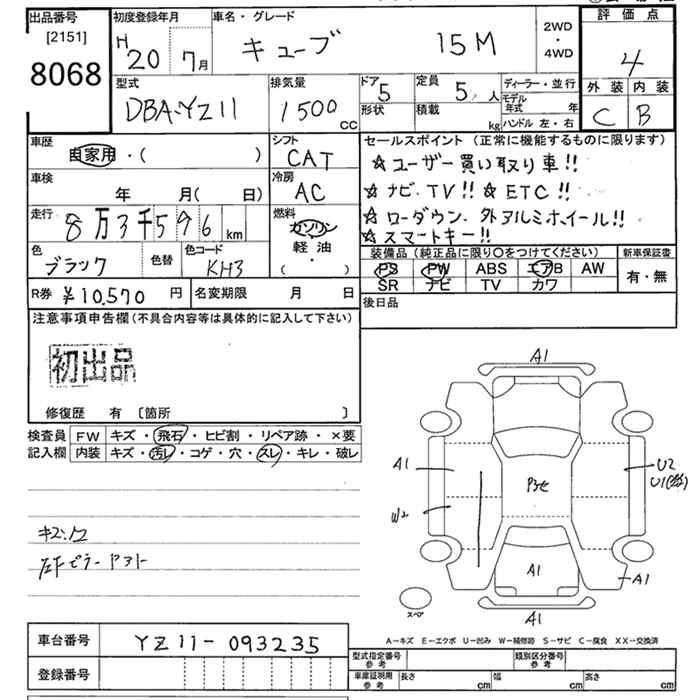 出品番号 初度登録年月 車名・グレード 評価点
[2151] H20 7月 キューブ 15M 2WD・4WD 4
8068 型式 排気量 ドア 5 定員 5人 ディーラー・並行 外装 内装
DBA-YZ11 1500cc 形状 積載 kg モデル年式 年 C B
ハンドル 左・右
車歴 自家用・( ) シフト CAT セールスポイント(正常に機能するものに限ります)
車検 年 月( 日) 冷房 AC ☆ユーザー買い取り車!!
☆ナビ、TV!! ☆ETC!!
走行 8万3千596km 燃料 ガソリン 軽油 ・( ) ☆ローダウン、外アルミホイール!!
☆スマートキー!!
色 ブラック 色替 色コード KH3 装備品(純正品に限り○をつけてください) 新車保証書
PS PW ABS エアB AW 有・無
SR ナビ TV カワ
R券 ¥10,570 円 名変期限 月 日 後日品
注意事項申告欄(不具合内容等は具体的に記入して下さい)
初出品
修復歴 有 [箇所 ]
検査員 FW キズ・飛石・ヒビ割・リペア跡・×要
記入欄 内装 キズ・汚レ・コゲ・穴・スレ・キレ・破レ
A1
A1 U2
U1
W2
A1 A1
スペア A1
キズ、凹
A-キズ E-エクボ U-凹み W-補修跡 S-サビ C-腐食 XX-交換済
車台番号 YZ11-093235 型式指定番号 参考 類別区分番号 参考
登録番号 車庫証明用 参考 長さ cm 幅 cm 高さ cm